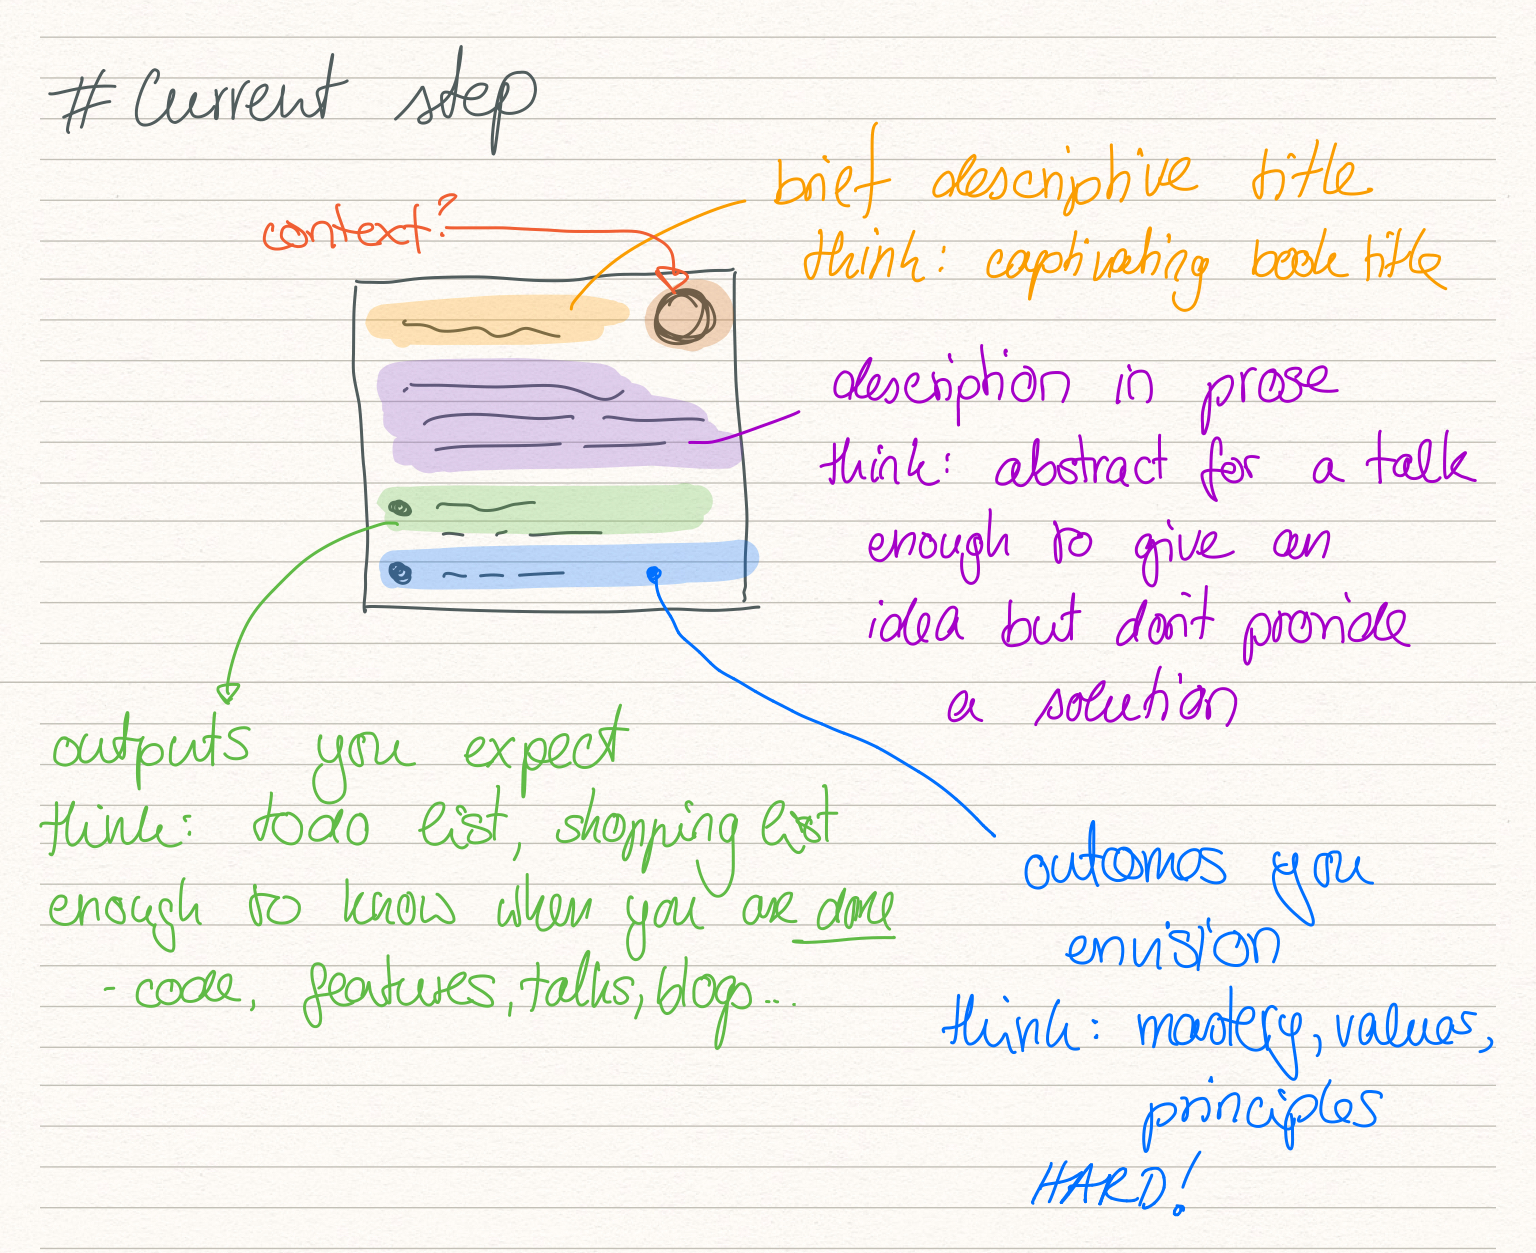 # Current step
context?
brief descriptive title
think: captivating book title
description in prose
think: abstract for a talk
enough to give an
idea but don't provide
a solution
outputs you expect
think: todo list, shopping list
enough to know when you are done
- code, features, talks, blogs...
outcomes you
envision
think: mastery, values,
principles
HARD!